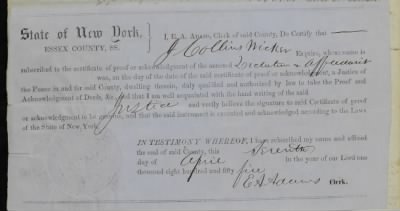 State of New York,
ESSEX COUNTY, SS.
I, E. A. ADAMS, Clerk of said County, Do Certify that
J Collins Wicker Esquire, whose name is
subscribed to the certificate of proof or acknowledgment of the annexed Declaration & Affidavit
was, on the day of the date of the said certificate of proof or acknowledgment, a Justice of
the Peace in and for said County, dwelling therein, duly qualified and authorized by law to take the Proof and
Acknowledgment of Deeds, &c., and that I am well acquainted with the hand writing of the said
Justice and verily believe the signature to said Certificate of proof
or acknowledgment to be genuine, and that the said instrument is executed and acknowledged according to the Laws
of the State of New York.
IN TESTIMONY WHEREOF, I have subscribed my name and affixed
the seal of said County, this
day of April in the year of our Lord one
thousand eight hundred and fifty five
E A Adams Clerk.